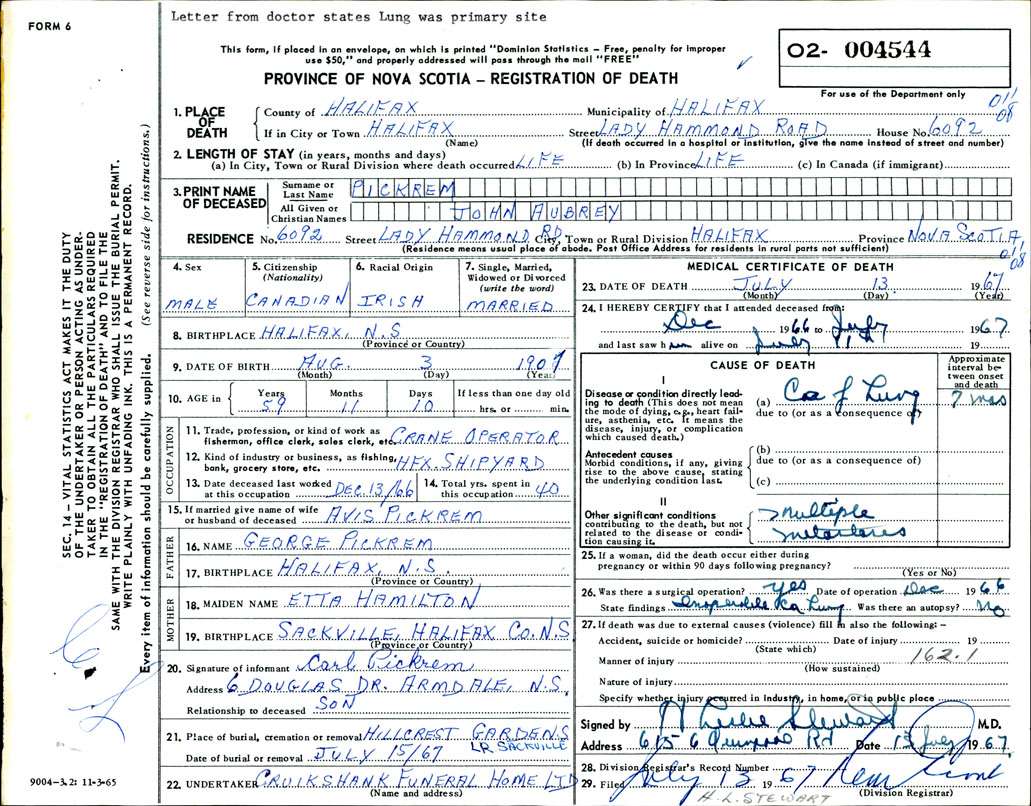 Letter from doctor states Lung was primary site
FORM 6
This form, if placed in an envelope, on which is printed "Dominion Statistics – Free, penalty for improper
use $50," and properly addressed will pass through the mail "FREE"
PROVINCE OF NOVA SCOTIA – REGISTRATION OF DEATH
02- 004544
For use of the Department only
011
08
SEC. 14 – VITAL STATISTICS ACT MAKES IT THE DUTY
OF THE UNDERTAKER OR PERSON ACTING AS UNDER-
TAKER TO OBTAIN ALL THE PARTICULARS REQUIRED
IN THE "REGISTRATION OF DEATH" AND TO FILE THE
SAME WITH THE DIVISION REGISTRAR WHO SHALL ISSUE THE BURIAL PERMIT.
WRITE PLAINLY WITH UNFADING INK. THIS IS A PERMANENT RECORD.
Every item of information should be carefully supplied. (See reverse side for instructions.)
1. PLACE OF DEATH
County of HALIFAX Municipality of HALIFAX
If in City or Town HALIFAX Street LADY HAMMOND ROAD House No. 6092
(Name) (If death occurred in a hospital or institution, give the name instead of street and number)
2. LENGTH OF STAY (in years, months and days)
(a) In City, Town or Rural Division where death occurred LIFE (b) In Province LIFE (c) In Canada (if immigrant)
3. PRINT NAME OF DECEASED
Surname or Last Name PICKREM
All Given or Christian Names JOHN AUBREY
RESIDENCE No. 6092 Street LADY HAMMOND RD City, Town or Rural Division HALIFAX Province NOVA SCOTIA
(Residence means usual place of abode. Post Office Address for residents in rural parts not sufficient)
011
08
4. Sex
MALE
5. Citizenship (Nationality)
CANADIAN
6. Racial Origin
IRISH
7. Single, Married, Widowed or Divorced (write the word)
MARRIED
8. BIRTHPLACE HALIFAX, N.S.
(Province or Country)
9. DATE OF BIRTH AUG. 3 1907
(Month) (Day) (Year)
10. AGE in Years 59 Months 11 Days 10 If less than one day old hrs. or min.
OCCUPATION
11. Trade, profession, or kind of work as
fisherman, office clerk, sales clerk, etc. CRANE OPERATOR
12. Kind of industry or business, as fishing,
bank, grocery store, etc. HFX SHIPYARD
13. Date deceased last worked at this occupation DEC. 13/66
14. Total yrs. spent in this occupation 40
15. If married give name of wife
or husband of deceased AVIS PICKREM
FATHER
16. NAME GEORGE PICKREM
17. BIRTHPLACE HALIFAX, N.S.
(Province or Country)
MOTHER
18. MAIDEN NAME ETTA HAMILTON
19. BIRTHPLACE SACKVILLE, HALIFAX CO. N.S.
(Province or Country)
20. Signature of informant Carl Pickrem
Address 6 DOUGLAS DR. ARMDALE, N.S.
Relationship to deceased SON
21. Place of burial, cremation or removal HILLCREST GARDENS
LR. SACKVILLE
Date of burial or removal JULY 15/67
22. UNDERTAKER CRUIKSHANK FUNERAL HOME LTD
(Name and address)
9004-3.2: 11-3-65
MEDICAL CERTIFICATE OF DEATH
23. DATE OF DEATH JULY 13 1967
(Month) (Day) (Year)
24. I HEREBY CERTIFY that I attended deceased from:
Dec 1966 to July 1967
and last saw him alive on July 19
CAUSE OF DEATH
Approximate interval between onset and death
I
Disease or condition directly lead-
ing to death (This does not mean
the mode of dying, e.g., heart fail-
ure, asthenia, etc. It means the
disease, injury, or complication
which caused death.)
(a) Ca of Lung
7 mos
due to (or as a consequence of)
Antecedent causes
Morbid conditions, if any, giving
rise to the above cause, stating
the underlying condition last.
(b)
due to (or as a consequence of)
(c)
II
Other significant conditions
contributing to the death, but not
related to the disease or condi-
tion causing it.
multiple
metastases
25. If a woman, did the death occur either during
pregnancy or within 90 days following pregnancy?
(Yes or No)
26. Was there a surgical operation? yes Date of operation Dec 1966
State findings Inoperable Ca Lung Was there an autopsy? No
27. If death was due to external causes (violence) fill in also the following: –
Accident, suicide or homicide? Date of injury 19
(State which)
Manner of injury 162.1
(How sustained)
Nature of injury
Specify whether injury occurred in Industry, in home, or in public place
Signed by H Leslie Stewart M.D.
Address 6156 Quinpool Rd Date 13 July 1967.
28. Division Registrar's Record Number
29. Filed July 13 1967
(Division Registrar)
H.L. STEWART